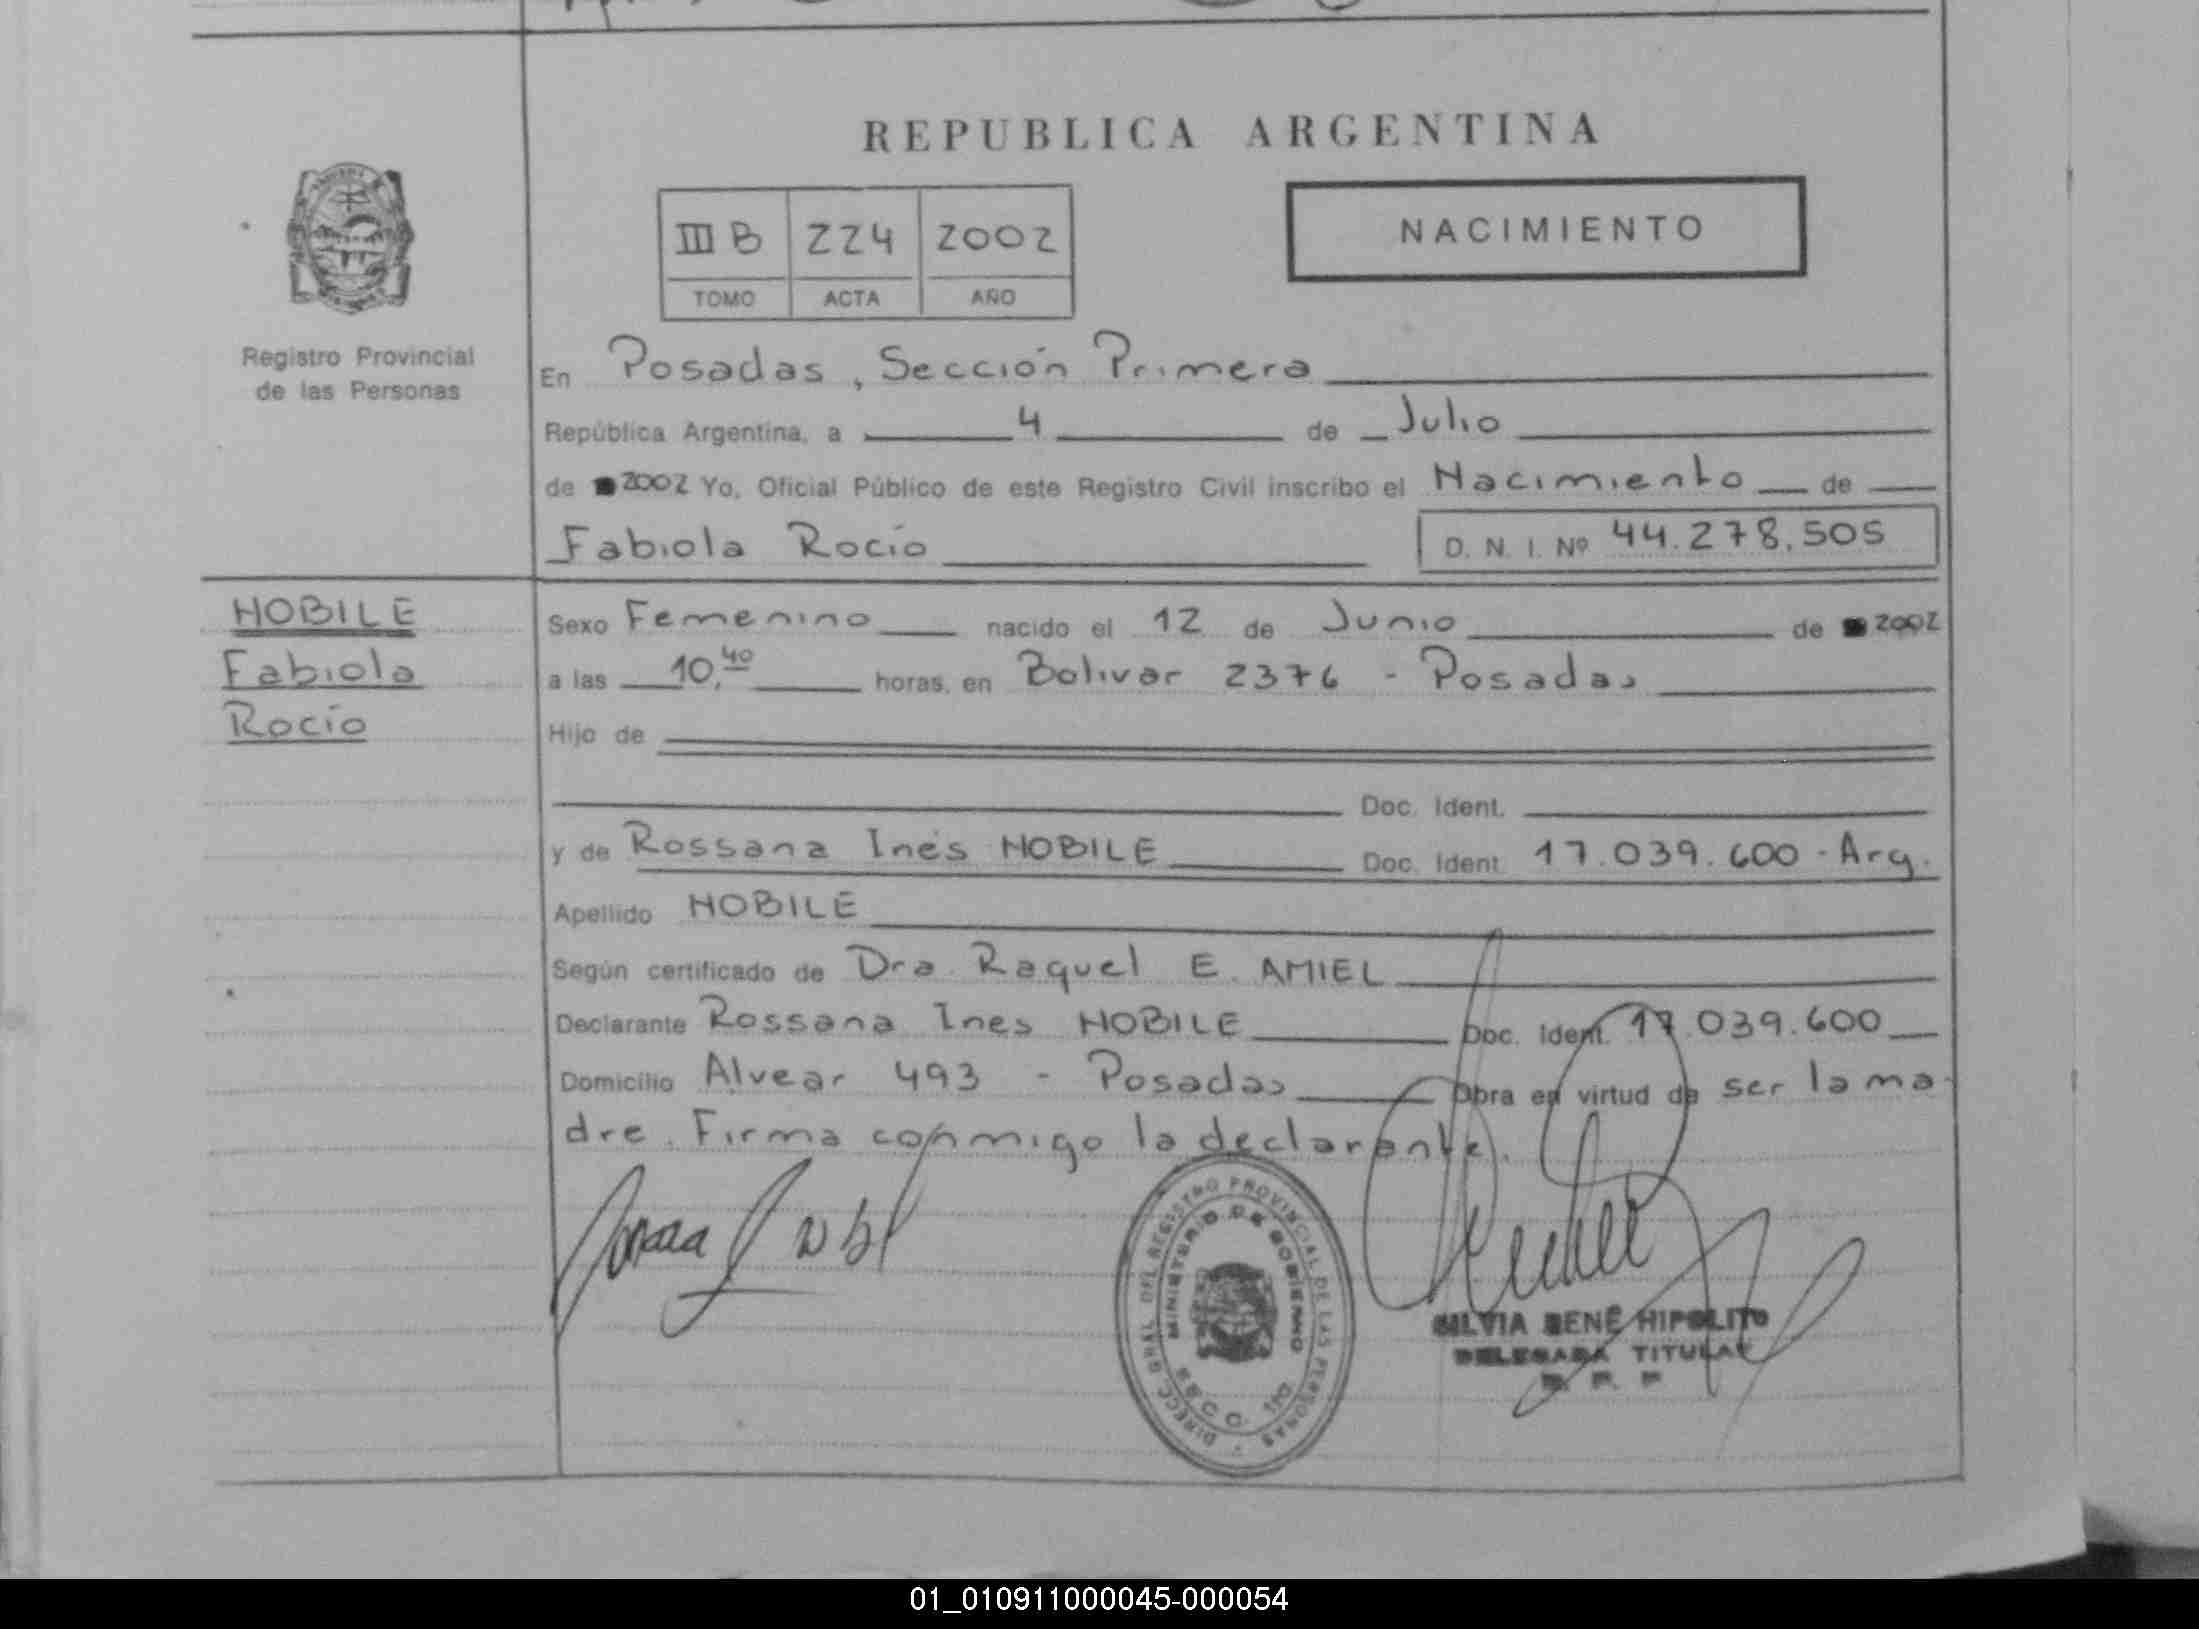 REPUBLICA ARGENTINA
III B 224 2002
TOMO ACTA AÑO
NACIMIENTO
Registro Provincial
de las Personas
En Posadas, Sección Primera
República Argentina, a 4 de Julio
de 2002 Yo, Oficial Público de este Registro Civil inscribo el Nacimiento de
Fabiola Rocío
D. N. I. Nº 44.278.505
NOBILE
Fabiola
Rocío
Sexo Femenino nacido el 12 de Junio de 2002
a las 10,40 horas, en Bolivar 2376 - Posadas
Hijo de
Doc. Ident.
y de Rossana Inés NOBILE Doc. Ident. 17.039.600 - Arg.
Apellido NOBILE
Según certificado de Dra. Raquel E. AMIEL
Declarante Rossana Ines NOBILE Doc. Ident. 17.039.600
Domicilio Alvear 493 - Posadas Obra en virtud de ser la ma-
dre. Firma conmigo la declarante.
DIRECC. GRAL. DEL REGISTRO PROVINCIAL DE LAS PERSONAS
MINISTERIO DE GOBIERNO
SILVIA RENÉ HIPOLITO
DELEGADA TITULAR
R. P. P
01_010911000045-000054